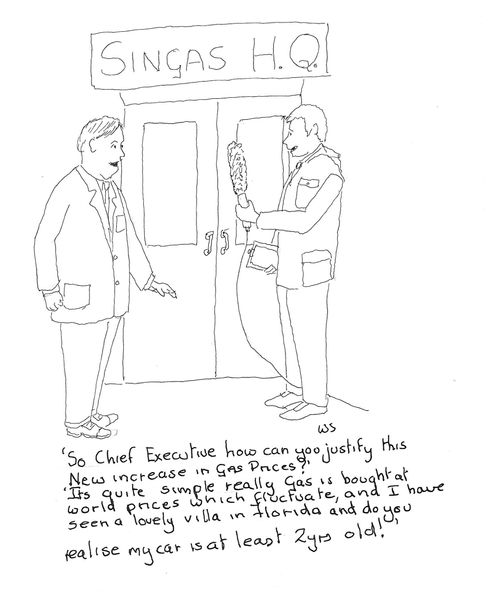 SINGAS H.Q.
WS
'So Chief Executive how can you justify this
New increase in Gas Prices?'
'Its quite simple really Gas is bought at
world prices which fluctuate, and I have
seen a lovely villa in florida and do you
realise my car is at least 2yrs old!'